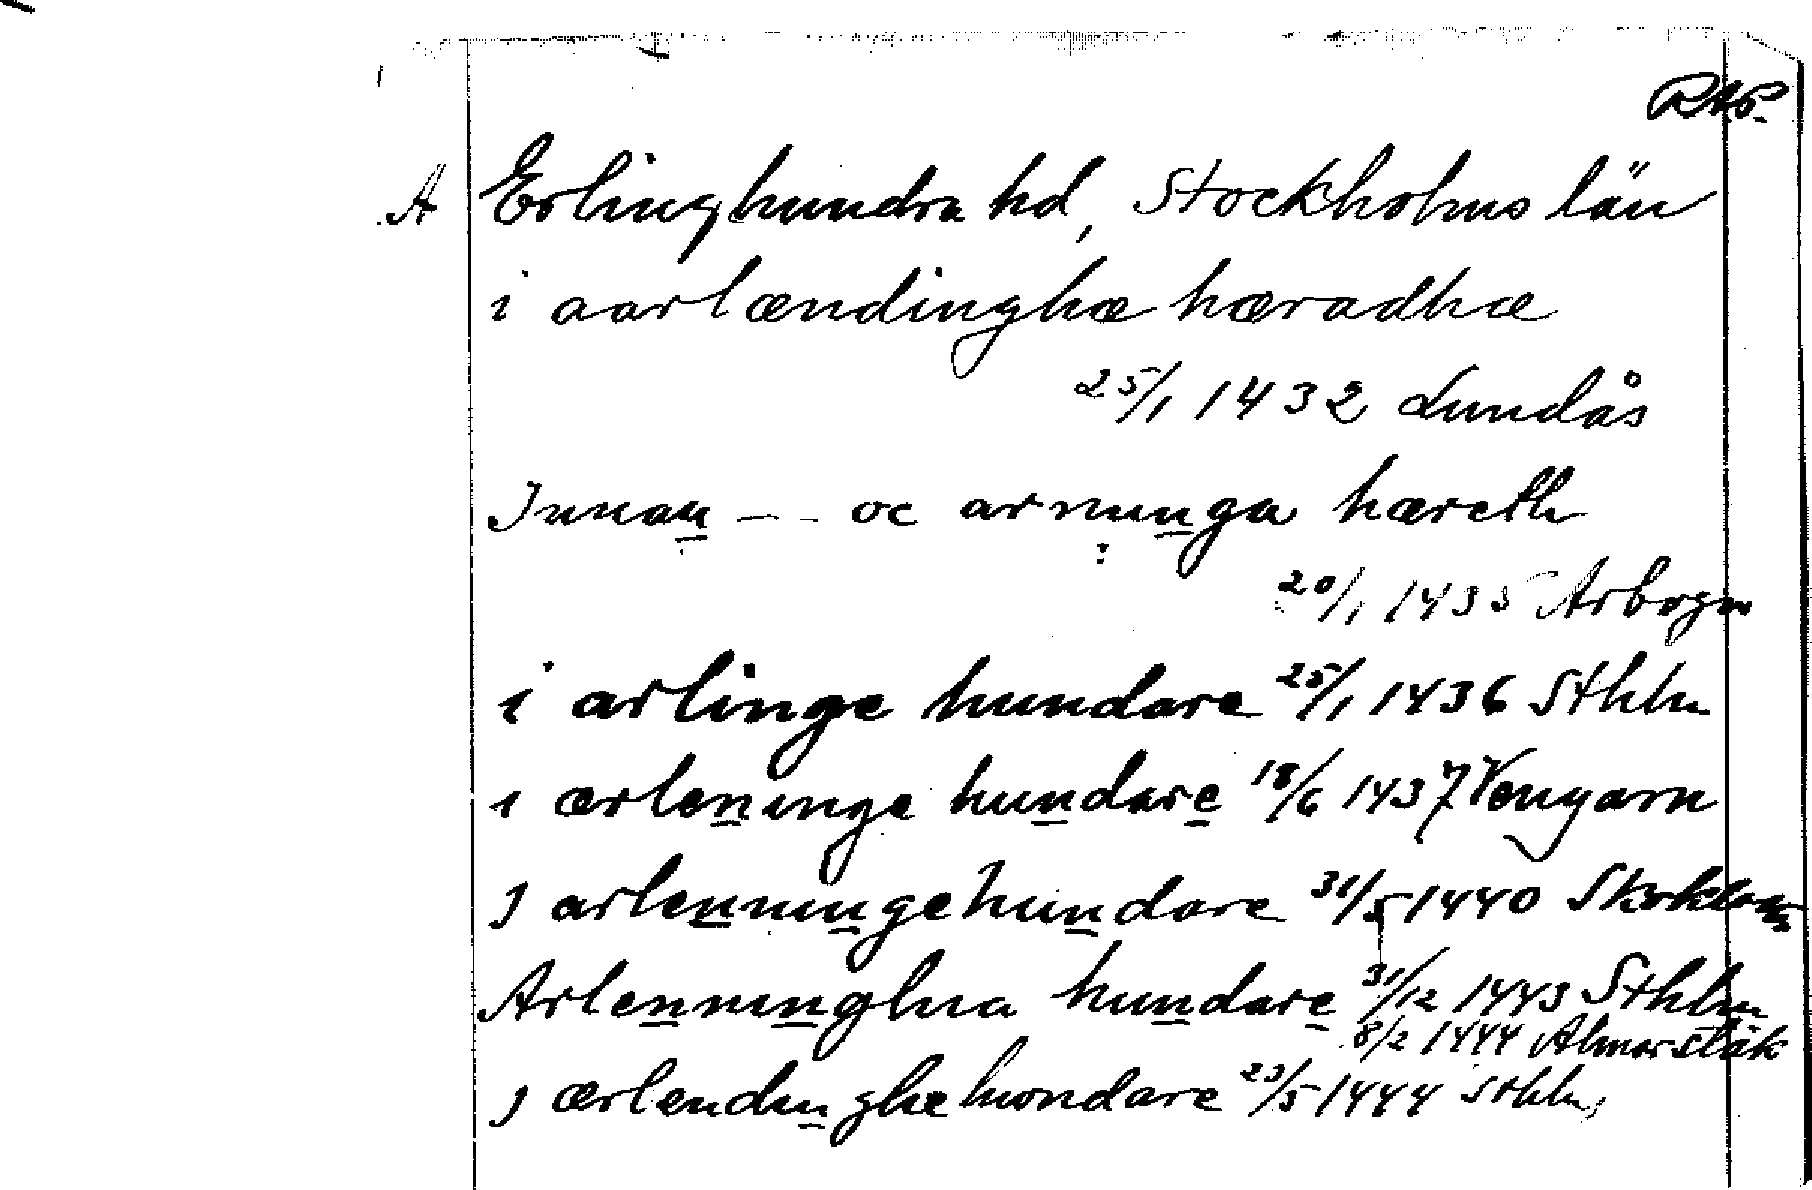 RAP.
A Erlinghundra hd, Stockholms län
i aarlændinghæ hæradhæ
25/1 1432 Lundås
Innan - - oc arnunga hæreth
20/1 1435 Arboga
i arlinge hundare 25/1 1436 Sthlm
i ærleninge hundare 18/6 1437 Vengarn
J arlenningehundare 31/5 1440 Skokloster
Arlenningha hundare 31/12 1443 Sthlm
8/2 1444 Almarstäk
J ærlendinghe hwndare 23/5 1444 Sthlm,